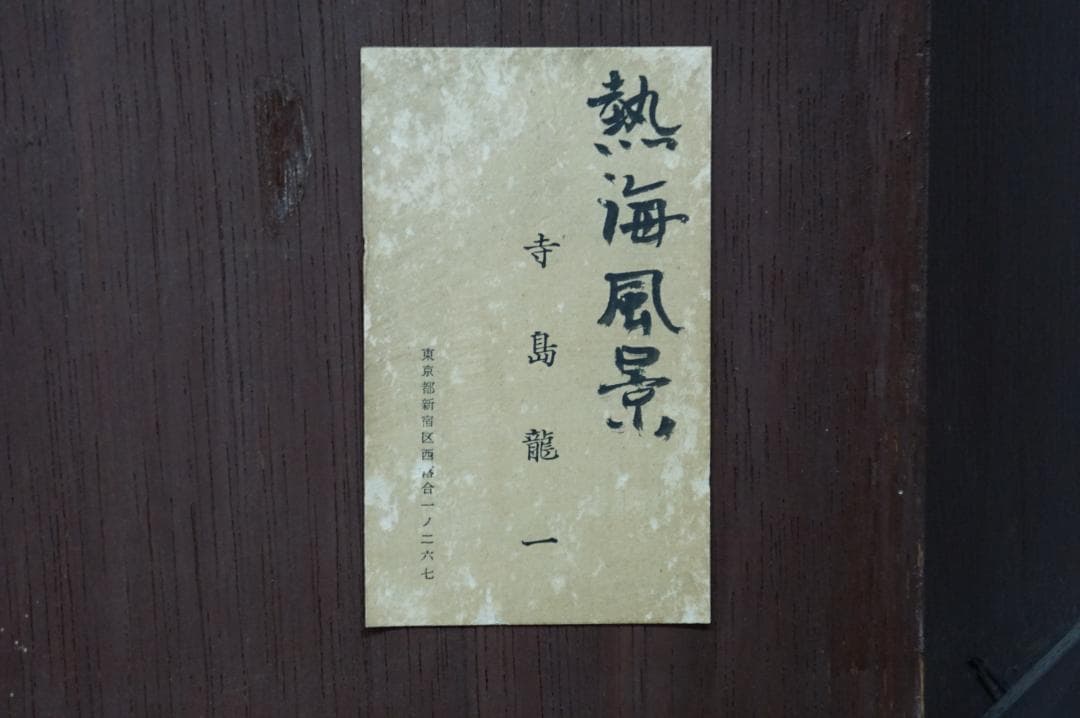 熱海風景
寺島龍一
東京都新宿区西落合一ノ二六七